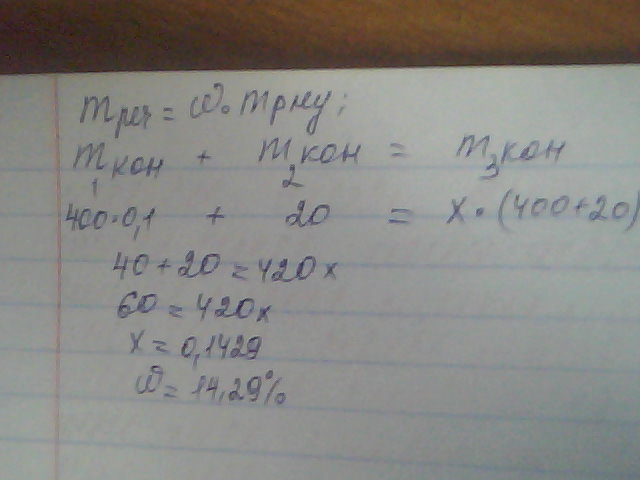 m реч = ω · m рну;
m1 кон + m2 кон = m3 кон
400·0,1 + 20 = x · (400+20)
40+20=420x
60=420x
x=0,1429
ω=14,29%